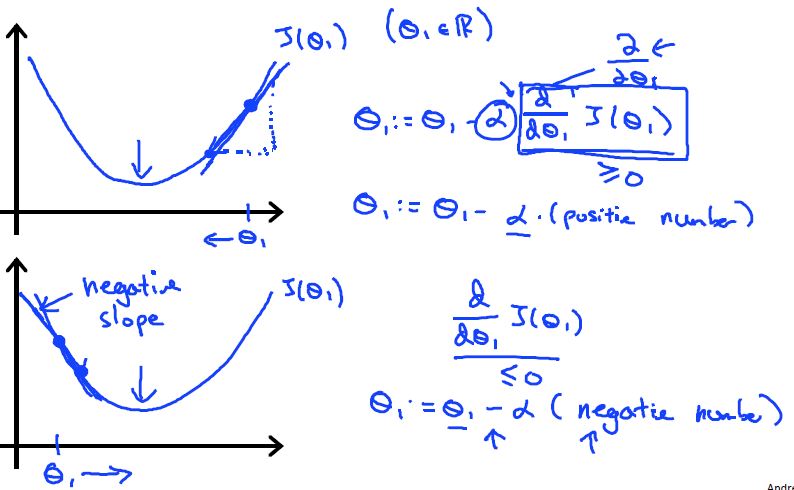 J(θ₁) (θ₁ ∈ ℝ)
∂/∂θ₁ ←
θ₁ := θ₁ - α d/dθ₁ J(θ₁)
≥ 0
θ₁ := θ₁ - α · (positie number)
← θ₁
negative
slope
J(θ₁)
d/dθ₁ J(θ₁)
≤ 0
θ₁ := θ₁ - α (negatie number)
θ₁ →
Andre